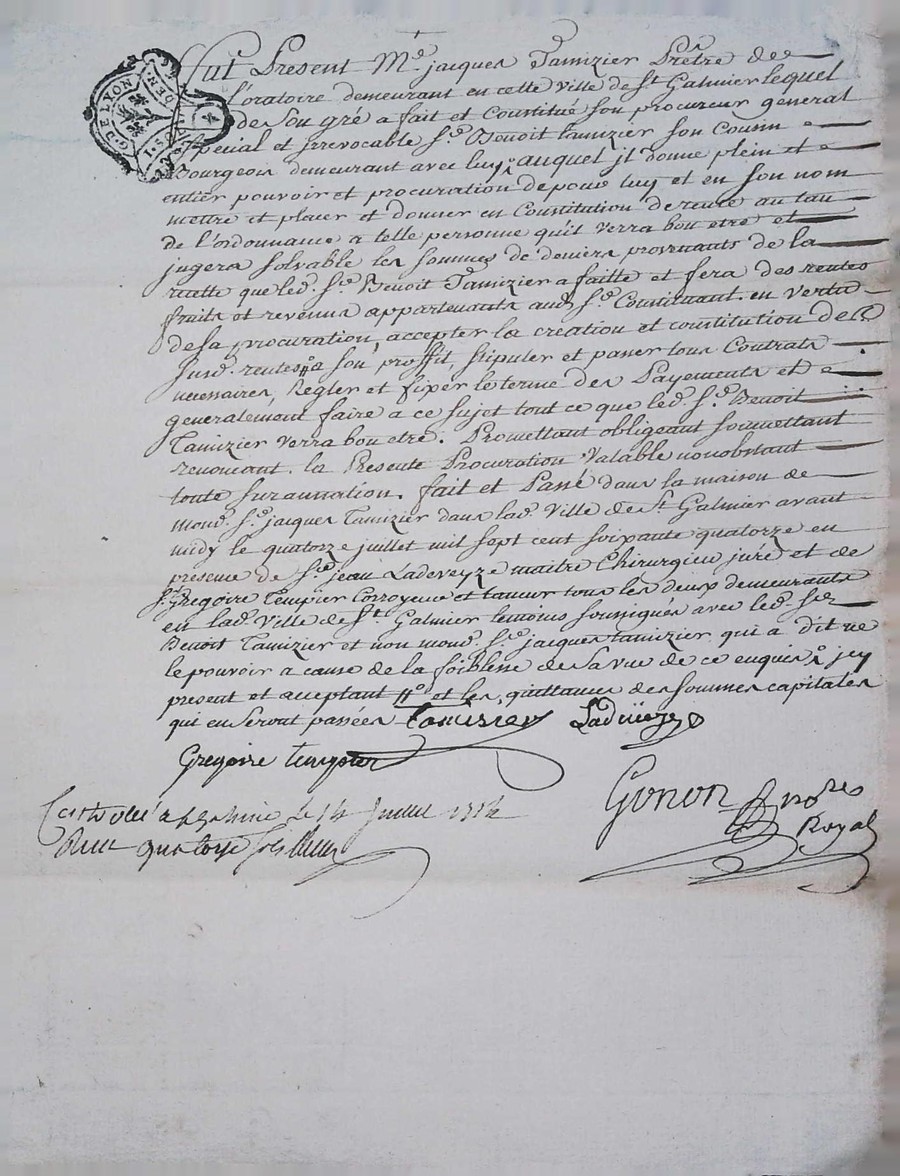 G. DE LYON
1. SOL
DEN.
4
Fut Present Me. jacques Tamizier Prêtre de
l'oratoire demeurant en cette Ville de St Galmier lequel
de Son gré a fait et Constitué Son procureur general
special et irrevocable Sr. Benoit tamizier Son Cousin
Bourgeois demeurant avec luy auquel jl donne plein et
entier pouvoir et procuration de pour luy et en Son nom
mettre et placer et donner en Constitution de rente au taux
de l'ordonnance a telle personne qu'il verra bon etre et
jugera Solvable les Sommes de deniers provenants de la
recette que led. Sr. Benoit Tamizier a faitte et fera des rentes
fruits et revenus appartenants aud. Sr. Constituant. en vertu
de sa procuration, accepter la creation et constitution de
susd. rentes a Son proffit, stipuler et passer tous Contrats
necessaires, Regler et fixer le terme des Payements et
generalement faire a ce Sujet tout ce que led. Sr. Benoit
Tamizier verra bon etre. Promettant obligeant Soumettant
renoncant. la Presente Procuration Valable nonobstant
toute Surannation. fait et Passé dans la maison de
mond. Sr. jacques Tamizier dans lad. Ville de St Galmier avant
midy le quatorze juillet mil sept cent soixante quatorze en
presence de Sr. jean Ladeveyze maitre Chirurgien juré et de
Sr. Gregoire Tempier Corroyeur et tanneur tous les deux demeurants
en lad. Ville de St Galmier temoins soussignés avec led. Sr
Benoit Tamizier et non mond. Sr. jacques tamizier qui a dit ne
le pouvoir a cause de la foiblesse de Sa vue de ce enquis jcy
present et acceptant et les quittances des Sommes capitales
qui en Seront passées Tamizier Ladeveze
Gregoire tempier
Gonon nore
Royal
a St galmier le 14 Juillet 1774
Recu quatorze sols